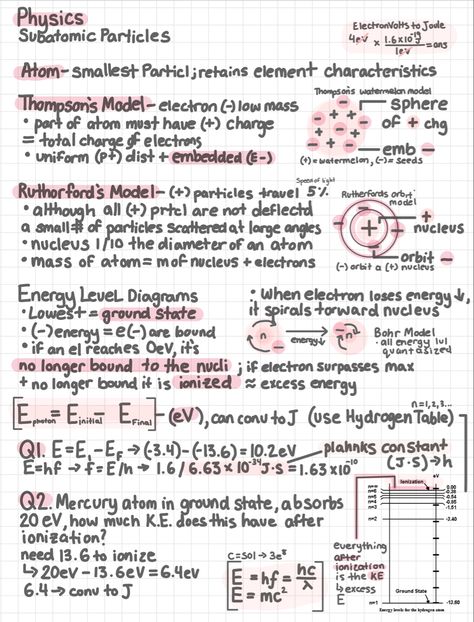 Physics
Subatomic Particles
ElectronVolts to Joule
4eV × 1.6×10⁻¹⁹J / 1eV = ans
Atom - smallest Particl; retains element characteristics
Thompson's Model - electron (-) low mass
• part of atom must have (+) charge
= total charge of electrons
• uniform (pt) dist + embedded (E-)
Thompson's watermelon model
sphere
of + chg
emb -
(+)=watermelon, (-)= seeds
Rutherford's Model - (+) particles travel 5%
Speed of light
• although all (+) prtcl are not deflectd
a small # of particles scattered at large angles
• nucleus 1/10 the diameter of an atom
• mass of atom = m of nucleus + electrons
Rutherfords orbit
model
+
nucleus
orbit -
(-) orbit a (+) nucleus
Energy Level Diagrams
• Lowest = ground state
• (-) energy = e(-) are bound
• if an el reaches 0eV, it's
no longer bound to the nucli ; if electron surpasses max
+ no longer bound it is ionized ≈ excess energy
• When electron loses energy ↓,
it spirals forward nucleus
n
energy↓
n
Bohr Model
• all energy lvl
quantasized
[E photon = E initial - E Final] - (eV), can conv to J (use Hydrogen Table)
n=1,2,3...
Q1. E = E₁ - E_F → (-3.4) - (-13.6) = 10.2eV
plahnks constant
(J·S)→h
E=hf → f = E/h → 1.6 / 6.63 × 10⁻³⁴ J·S = 1.63 × 10⁻¹⁰
Q2. Mercury atom in ground state, absorbs
20 eV, how much K.E. does this have after
ionization?
need 13.6 to ionize
↳ 20eV - 13.6eV = 6.4eV
6.4 → conv to J
C = Sol → 3e⁸
E = hf = hc/λ
E = mc²
everything
after
ionization
is the KE
↳ excess
E
eV
Ionization
n=∞ 0.00
-0.28
-0.38
-0.54
-0.85
n=3 -1.51
n=2 -3.40
Ground State
n=1 -13.60
Energy levels for the hydrogen atom